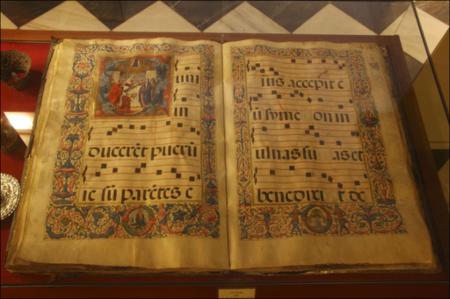 in
ducerēt puerū
ie sū parētes e
ius accepit e
ū syme on in
ulnas su as et
benedixi t de